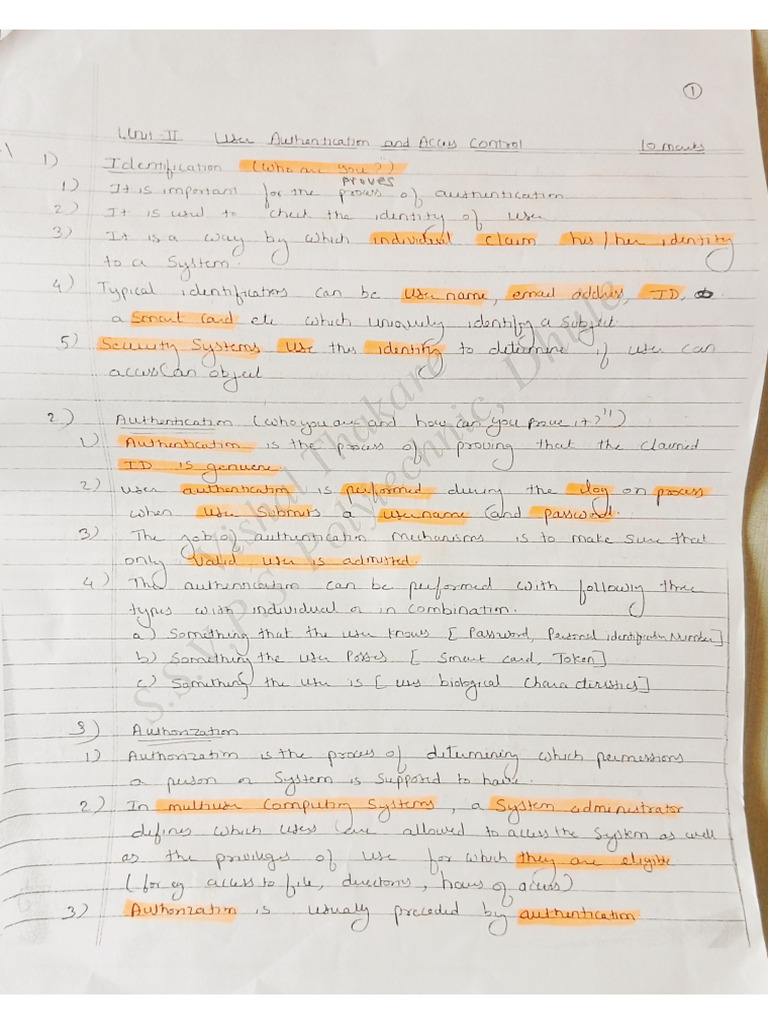 1
Unit-II User Authentication and Access Control 10 marks
1) Identification (who are you?")
proves
1) It is important for the process of authentication
2) It is used to check the identity of user
3) It is a way by which individual claim his/her identity
to a System.
4) Typical identificators can be username, email address, ID,
a smart card etc which uniquely identify a Subject.
5) Security Systems use this identity to determine if user can
access an object
2) Authentication (who you are and how can you prove it?")
1) Authentication is the process of proving that the claimed
ID is genuene
2) user authentication is performed during the log on process
when user Submits a username (and password.
3) The job of authentication mechanisms is to make sure that
only valid user is admitted.
4) The authentication can be performed with following three
types with individual or in combination.
a) Something that the user knows [Password, Personal identification Number]
b) Something the user Posses [Smart card, Token]
c) Something the user is [users biological characteristics]
3) Authorization
1) Authorization is the process of determining which permissions
a person or System is supposed to have.
2) In multiuser Computing Systems, a System administrator
defines which users are allowed to access the System as well
as the privileges of use for which they are eligible
(for eg access to file, directories, hours of access)
3) Authorization is usually preceded by authentication
Vishal Thakare
S.S.V.P.S Polytechnic, Dhule